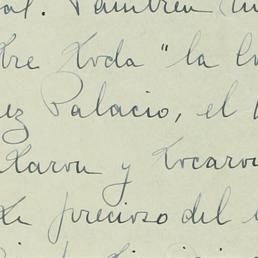 al. También
tre toda "la
ez Palacio, el
taron y tocaron
te precioso del